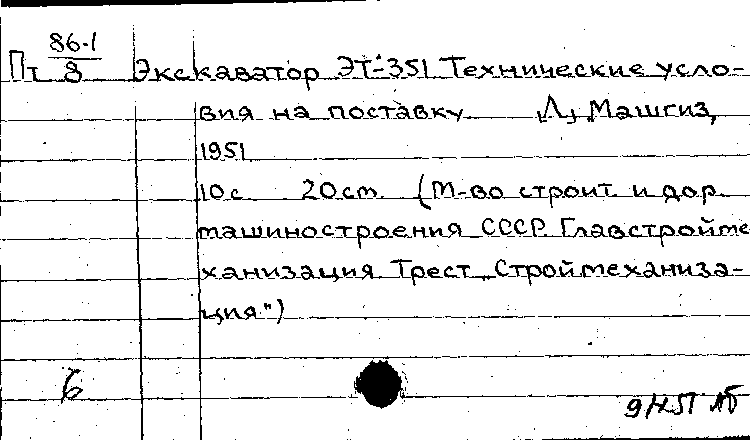 86-1
Пт 8 Экскаватор ЭТ-351 Технические усло-
вия на поставку [Л], Машгиз,
1951
10 с. 20 cm (М-во строит. и дор.
машиностроения СССР. Главстройме
ханизация Трест „Строймеханиза-
ция")
6